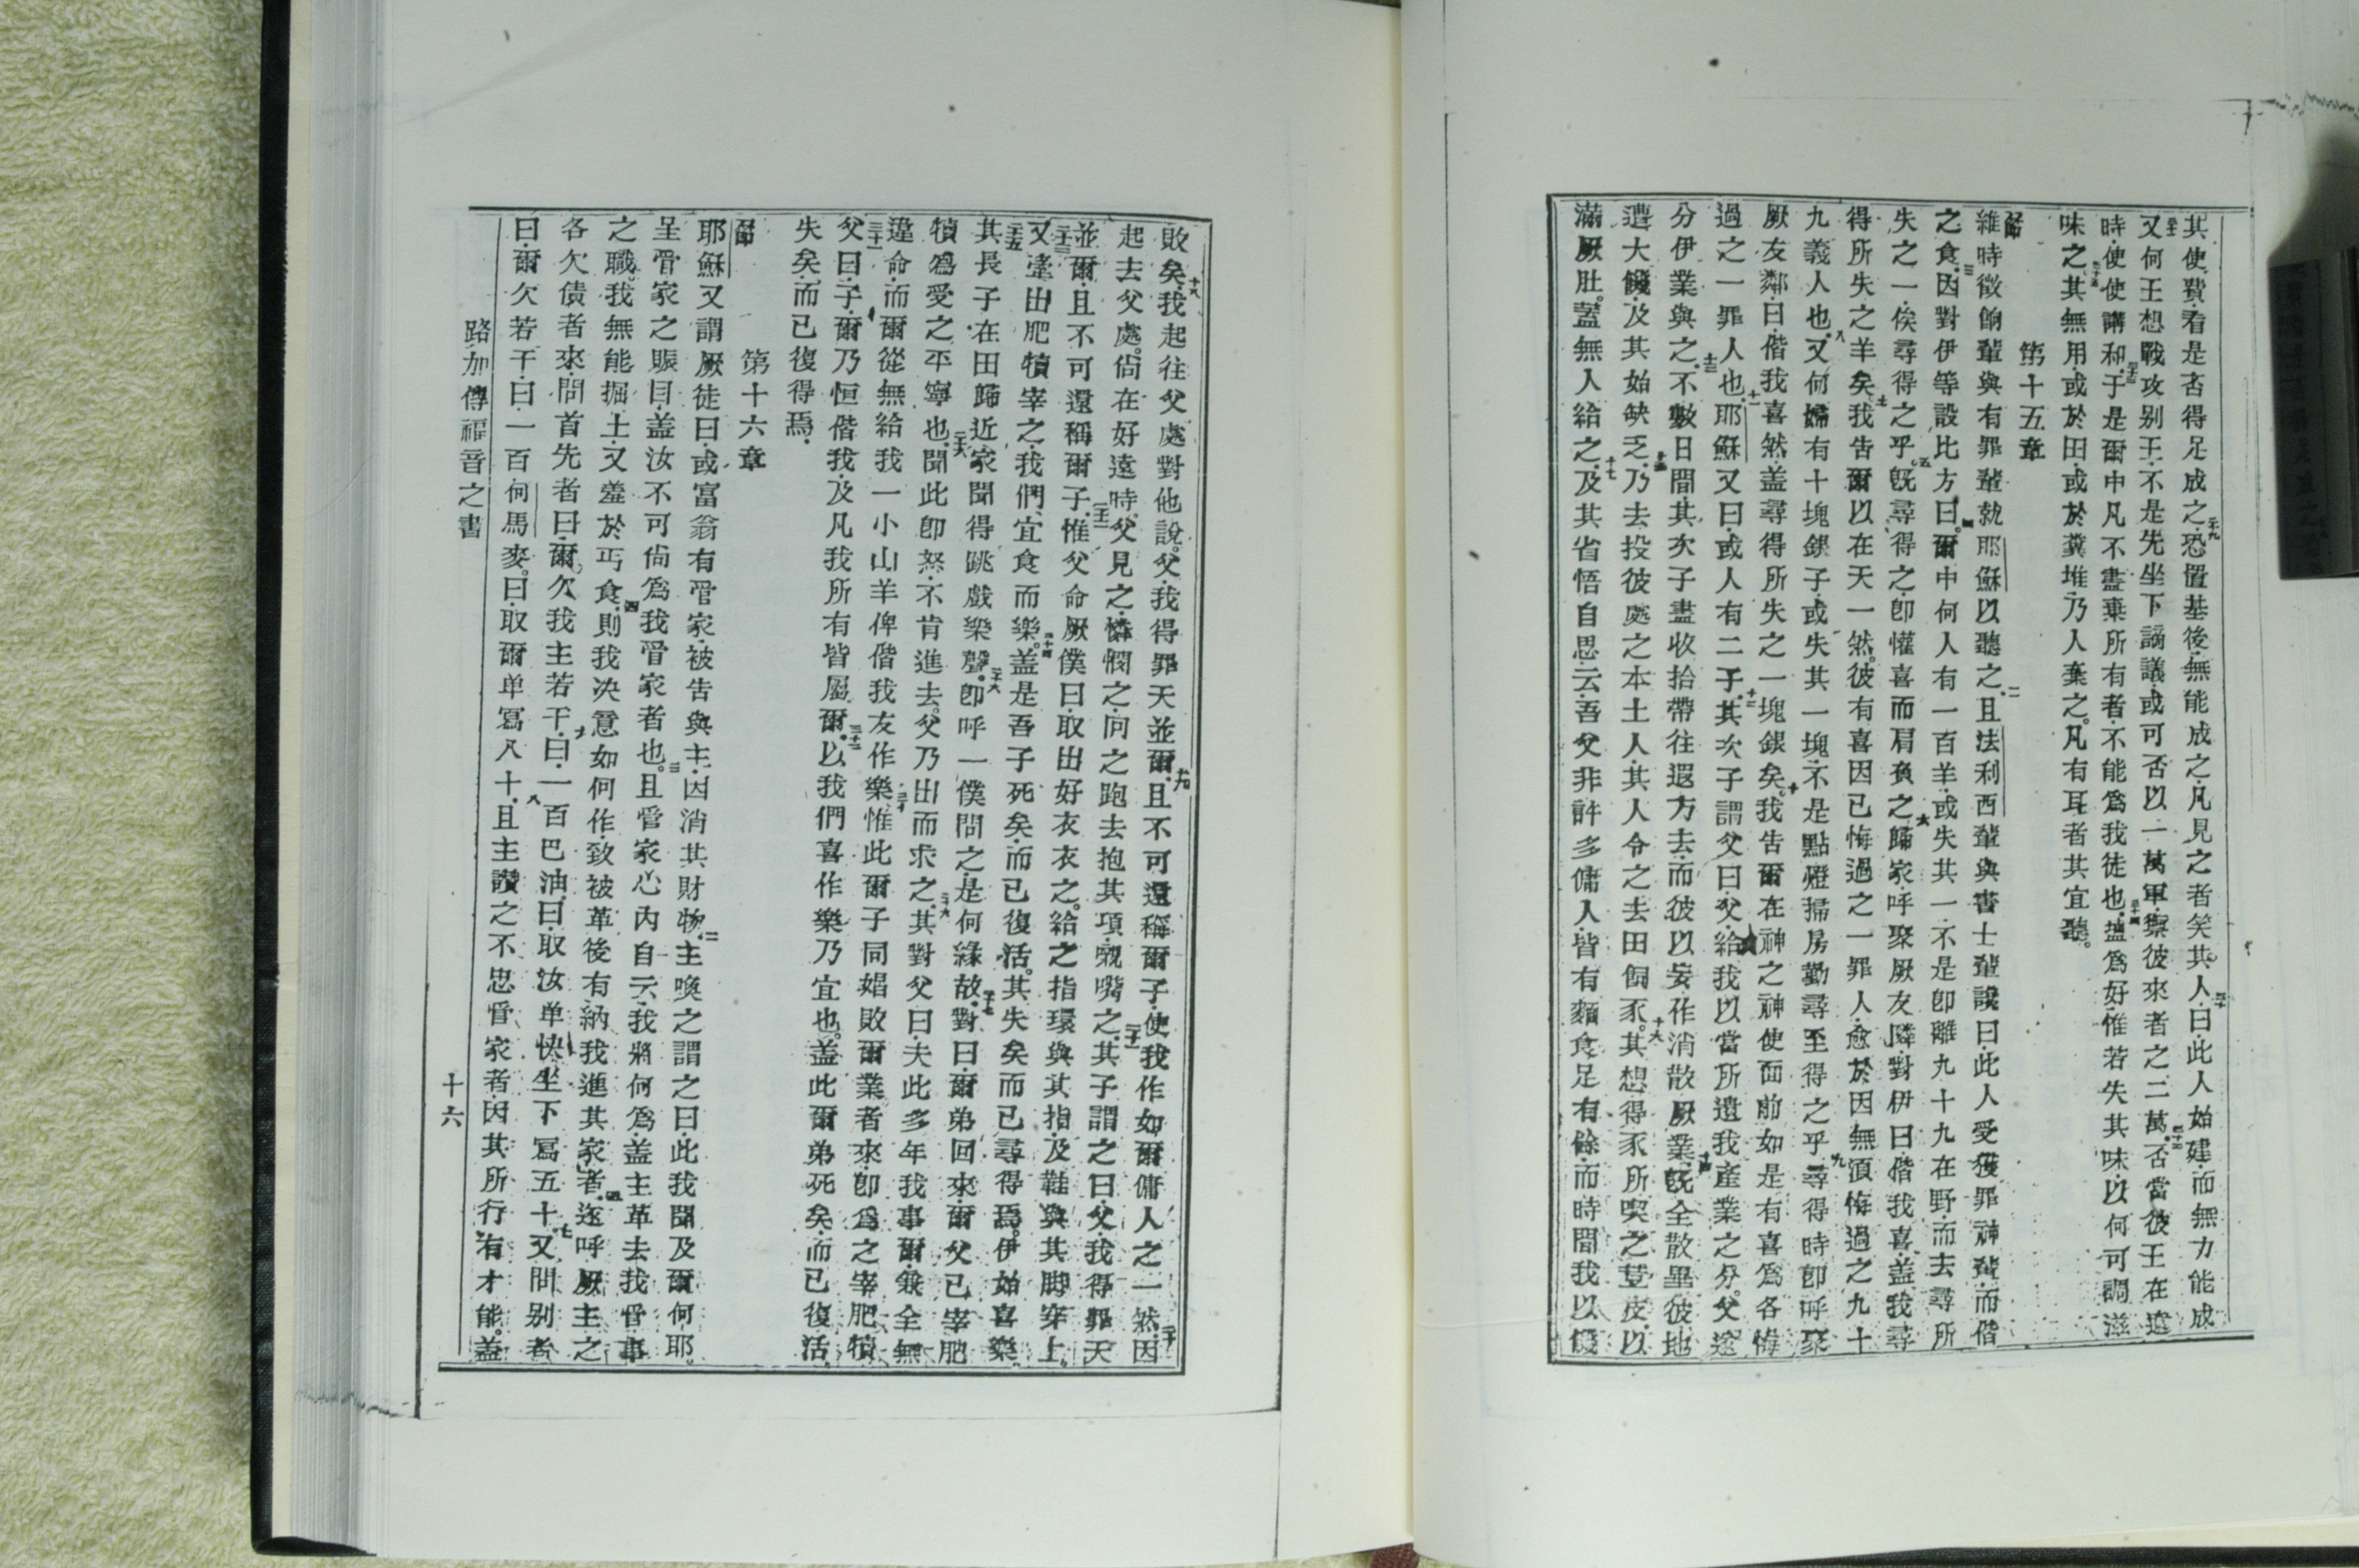 其使費看是否得足成之恐置基後無能成之凡見之者笑其人曰此人始建而無力能成
又何王想戰攻別王不是先坐下謫議或可否以一萬軍禦彼來者之二萬否當彼王在遠
時使使講和于是爾中凡不盡棄所有者不能為我徒也鹽為好惟若失其味以何可調滋
味之其無用或於田或於糞堆乃人棄之凡有耳者其宜聽
第十五章
節
維時徵餉輩與有罪輩就耶穌以聽之且法利西輩與書士輩譏曰此人受獲罪神輩而偕
之食因對伊等設比方曰爾中何人有一百羊或失其一不是即離九十九在野而去尋所
失之一俟尋得之乎既尋得之即懽喜而肩負之歸家呼聚厥友隣對伊曰偕我喜蓋我尋
得所失之羊矣我告爾以在天一然彼有喜因已悔過之一罪人愈於因無須悔過之九十
九義人也又何婦有十塊銀子或失其一塊不是點燈掃房勤尋至得之乎尋得時即呼聚
厥友鄰曰偕我喜然蓋尋得所失之一塊銀矣我告爾在神之神使面前如是有喜為各悔
過之一罪人也耶穌又曰或人有二子其次子謂父曰父給我以當所遺我產業之分父遂
分伊業與之不數日間其次子盡收拾帶往遐方去而彼以妄作消散厥業既全散畢彼地
遭大饑及其始缺乏乃去投彼處之本土人其人令之去田飼豕其想得豕所喫之荳皮以
滿厥肚蓋無人給之及其省悟自思云吾父非許多傭人皆有麵食足有餘而時間我以饑
敗矣我起往父處對他說父我得罪天並爾且不可還稱爾子使我作如爾傭人之一然因
起去父處尚在好遠時父見之憐憫之向之跑去抱其項親嘴之其子謂之曰父我得罪天
並爾且不可還稱爾子惟父命厥僕曰取出好衣衣之給之指環與其指及鞋與其脚穿上
又牽出肥犢宰之我們宜食而樂蓋是吾子死矣而已復活其失矣而已尋得焉伊始喜樂
其長子在田歸近家聞得跳戲樂聲即呼一僕問之是何緣故對曰爾弟回來爾父已宰肥
犢為愛之平寧也聞此即怒不肯進去父乃出而求之其對父曰夫此多年我事爾兼全無
違命而爾從無給我一小山羊俾偕我友作樂惟此爾子同娼敗爾業者來即為之宰肥犢
父曰子爾乃恒偕我及凡我所有皆屬爾以我們喜作樂乃宜也蓋此爾弟死矣而已復活
失矣而已復得焉
第十六章
節
耶穌又謂厥徒曰或富翁有管家被告與主因消其財物主喚之謂之曰此我聞及爾何耶
呈管家之賬目蓋汝不可尚為我管家者也且管家心內自云我將何為蓋主革去我管事
之職我無能掘土又羞於丐食則我决意如何作致被革後有納我進其家者遂呼厥主之
各欠債者來問首先者曰爾欠我主若干曰一百巴油曰取汝単快坐下寫五十又問別者
曰爾欠若干曰一百何馬麥曰取爾单寫八十且主讚之不忠管家者因其所行有才能蓋
路加傳福音之書
十六